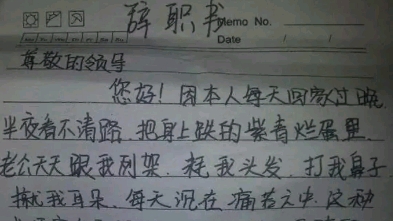 辞职书
Memo No.
Date / /
尊敬的领导
您好！因本人每天回家过晚
半夜看不清路 把身上跌的紫青烂蛋里
老公天天跟我列架 耗我头发，打我鼻子
揪我耳朵，每天沉在痛苦之中 这种